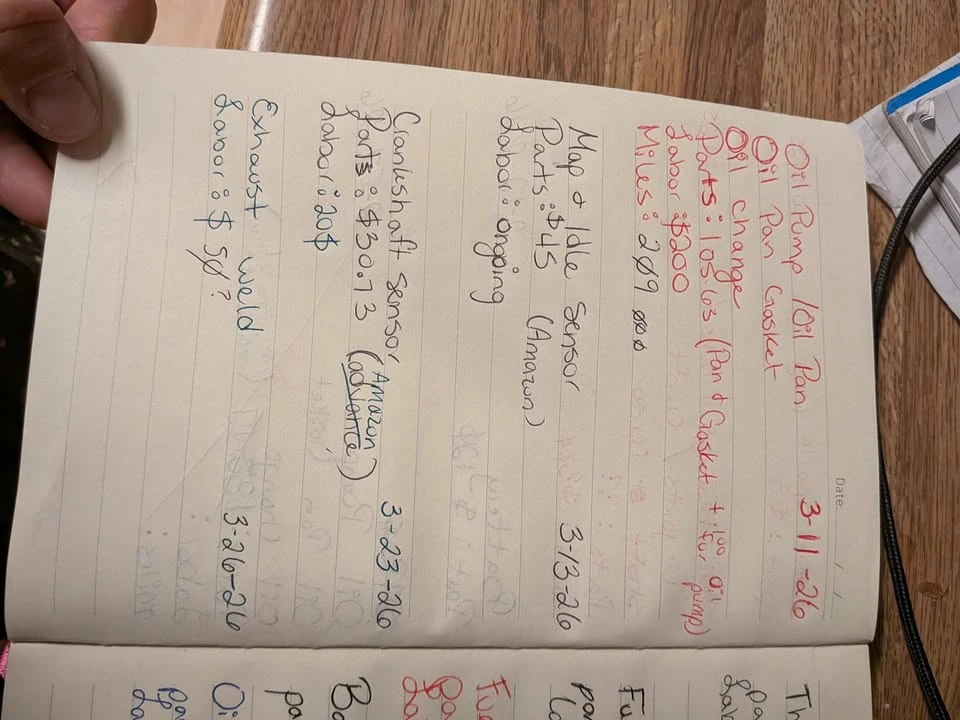 Date: / /
Oil Pump /Oil Pan 3-11-26
Oil Pan Gasket
Oil change
Parts: 105.63 (Pan & Gasket + 100 for oil pump)
Labor: $200
Miles: 209 000
Map & Idle Sensor 3-13-26
Parts: $45 (Amazon)
Labor: ongoing
Crankshaft Sensor 3-23-26
Amazon
Parts: $30.73 (advance)
Labor: 20$
Exhaust weld 3-26-26
Labor: $50?
Th
Pa
Lab
Fu
par
La
Fue
Pa
La
Ba
pa
Oi
Pa
La